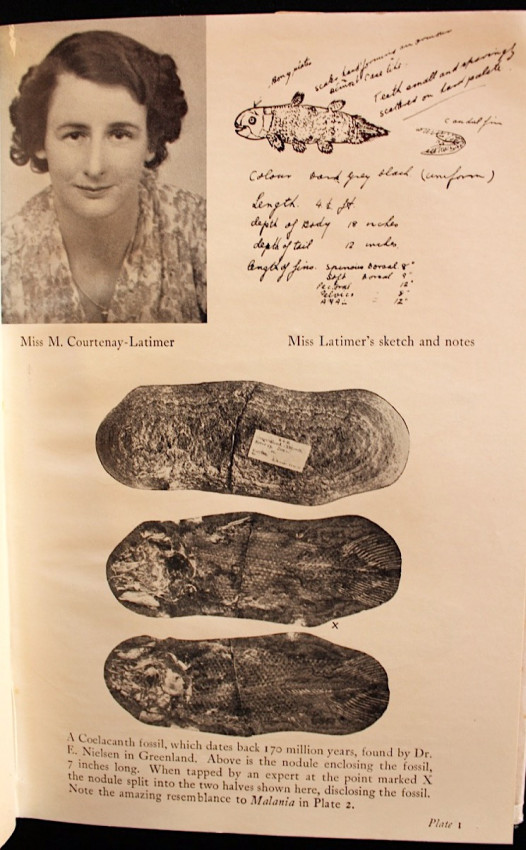 Bony plates
scales hard forming an armour
almost case like.
Teeth small and sparsingly
scattered on hard palate.
Caudal fin
Colour hard grey black (uniform)
Length. 4½ ft.
depth of Body 18 inches
depth of tail 12 inches
length of fins. Spinous Dorsal 8"
Soft Dorsal 9"
Pectoral 12"
Pelvics 8"
Anal 12"
Miss M. Courtenay-Latimer
Miss Latimer's sketch and notes
X
A Coelacanth fossil, which dates back 170 million years, found by Dr.
E. Nielsen in Greenland. Above is the nodule enclosing the fossil,
7 inches long. When tapped by an expert at the point marked X
the nodule split into the two halves shown here, disclosing the fossil.
Note the amazing resemblance to Malania in Plate 2.
Plate 1